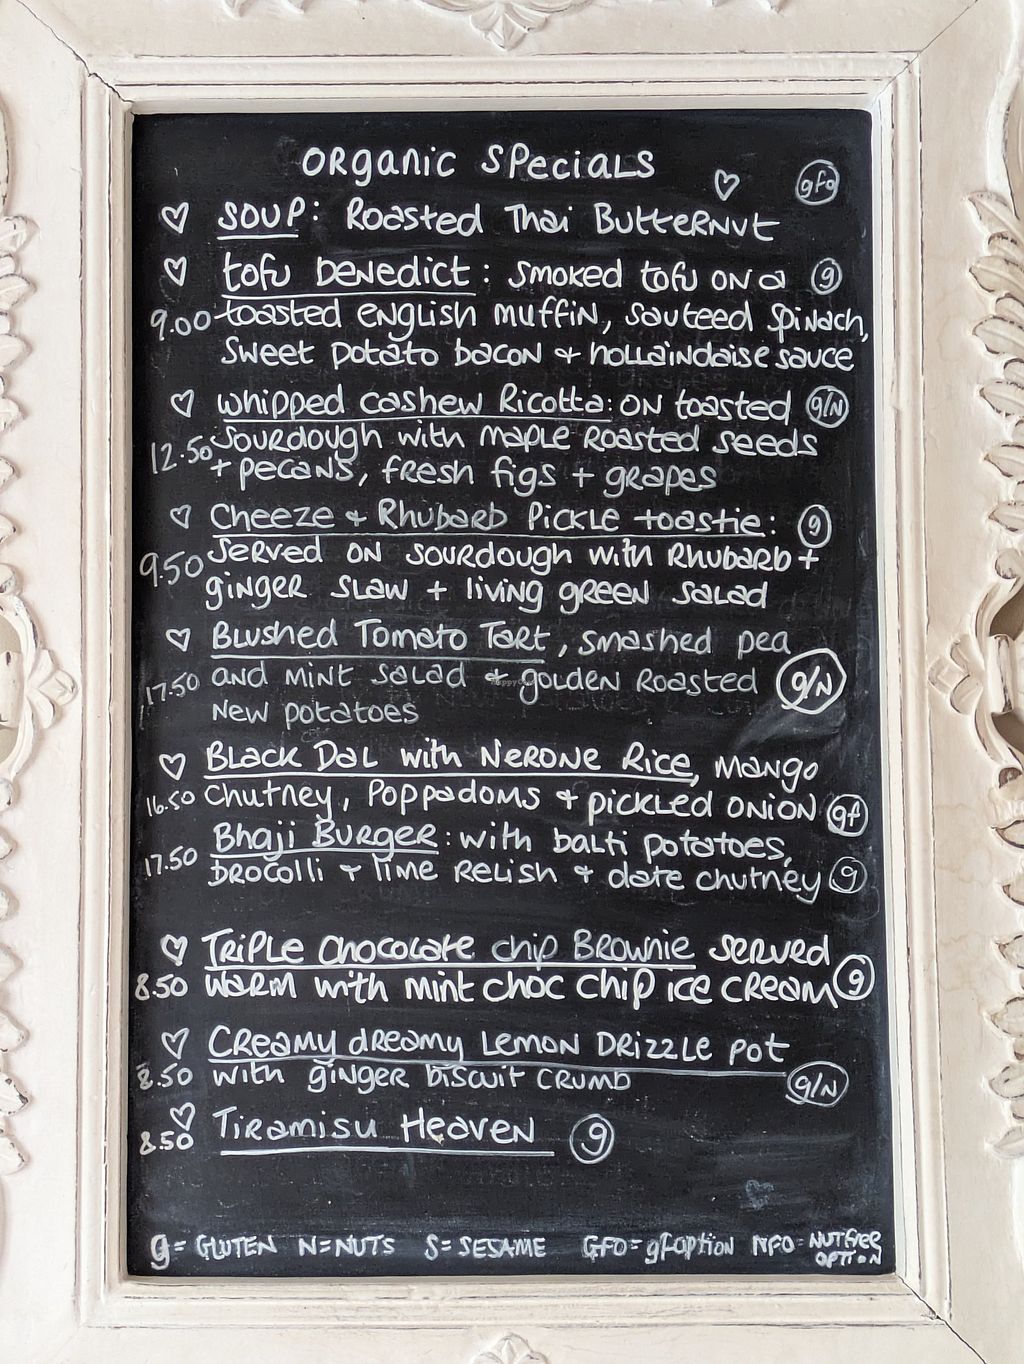 ORganic SPecials
gfo
SOUP: Roasted Thai ButteRNut
tofu beNedict: smoked tofu ON a g
9.00 toasted eNgLish muffiN, sauteed spiNach,
sweet potato bacoN + hollaindaise sauce
whipped cashew Ricotta: ON toasted g/N
12.50 sourdough with maple Roasted seeds
+ pecaNs, fresh figs + gRapes
Cheeze + Rhubarb PickLe toastie: g
9.50 served ON sourdough with Rhubarb +
giNger SLaw + living green salad
BLushed Tomato Tart, smashed pea
17.50 and mint salad & golden Roasted g/N
New potatoes
BLack Dal with NeRone Rice, mango
16.50 chutney, Poppadoms + pickled onion gf
Bhaji Burger: with balti potatoes,
17.50 brocolli + lime Relish + date chutney g
TRiPle chocolate chip BRownie served
8.50 warm with mint choc chip ice cream g
CReamy dreamy Lemon DRizzle pot
8.50 with ginger biscuit crumb g/N
8.50 Tiramisu Heaven g
g = GLUTEN N=NUTS S=SESAME GFO= gf option NFO= NUTfree
OPTION